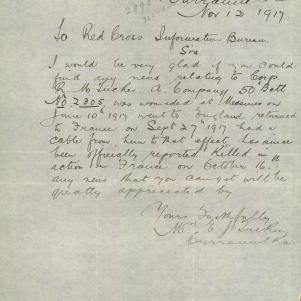 Nov 12 1917.
To Red Cross Information Bureau
Sirs
I would be very glad if you could
find any news relating to Corp.
R. M. Tucker. A. Company 50 Batt
No 2305, was wounded at Messines on
June 10th 1917 went to England returned
to France on Sept 27 1917 had a
cable from him to that effect, has now
been officially reported killed in
action in France on October 16.
any news that you can get will be
greatly appreciated by
Yours Faithfully
Mrs E. J. Tucker